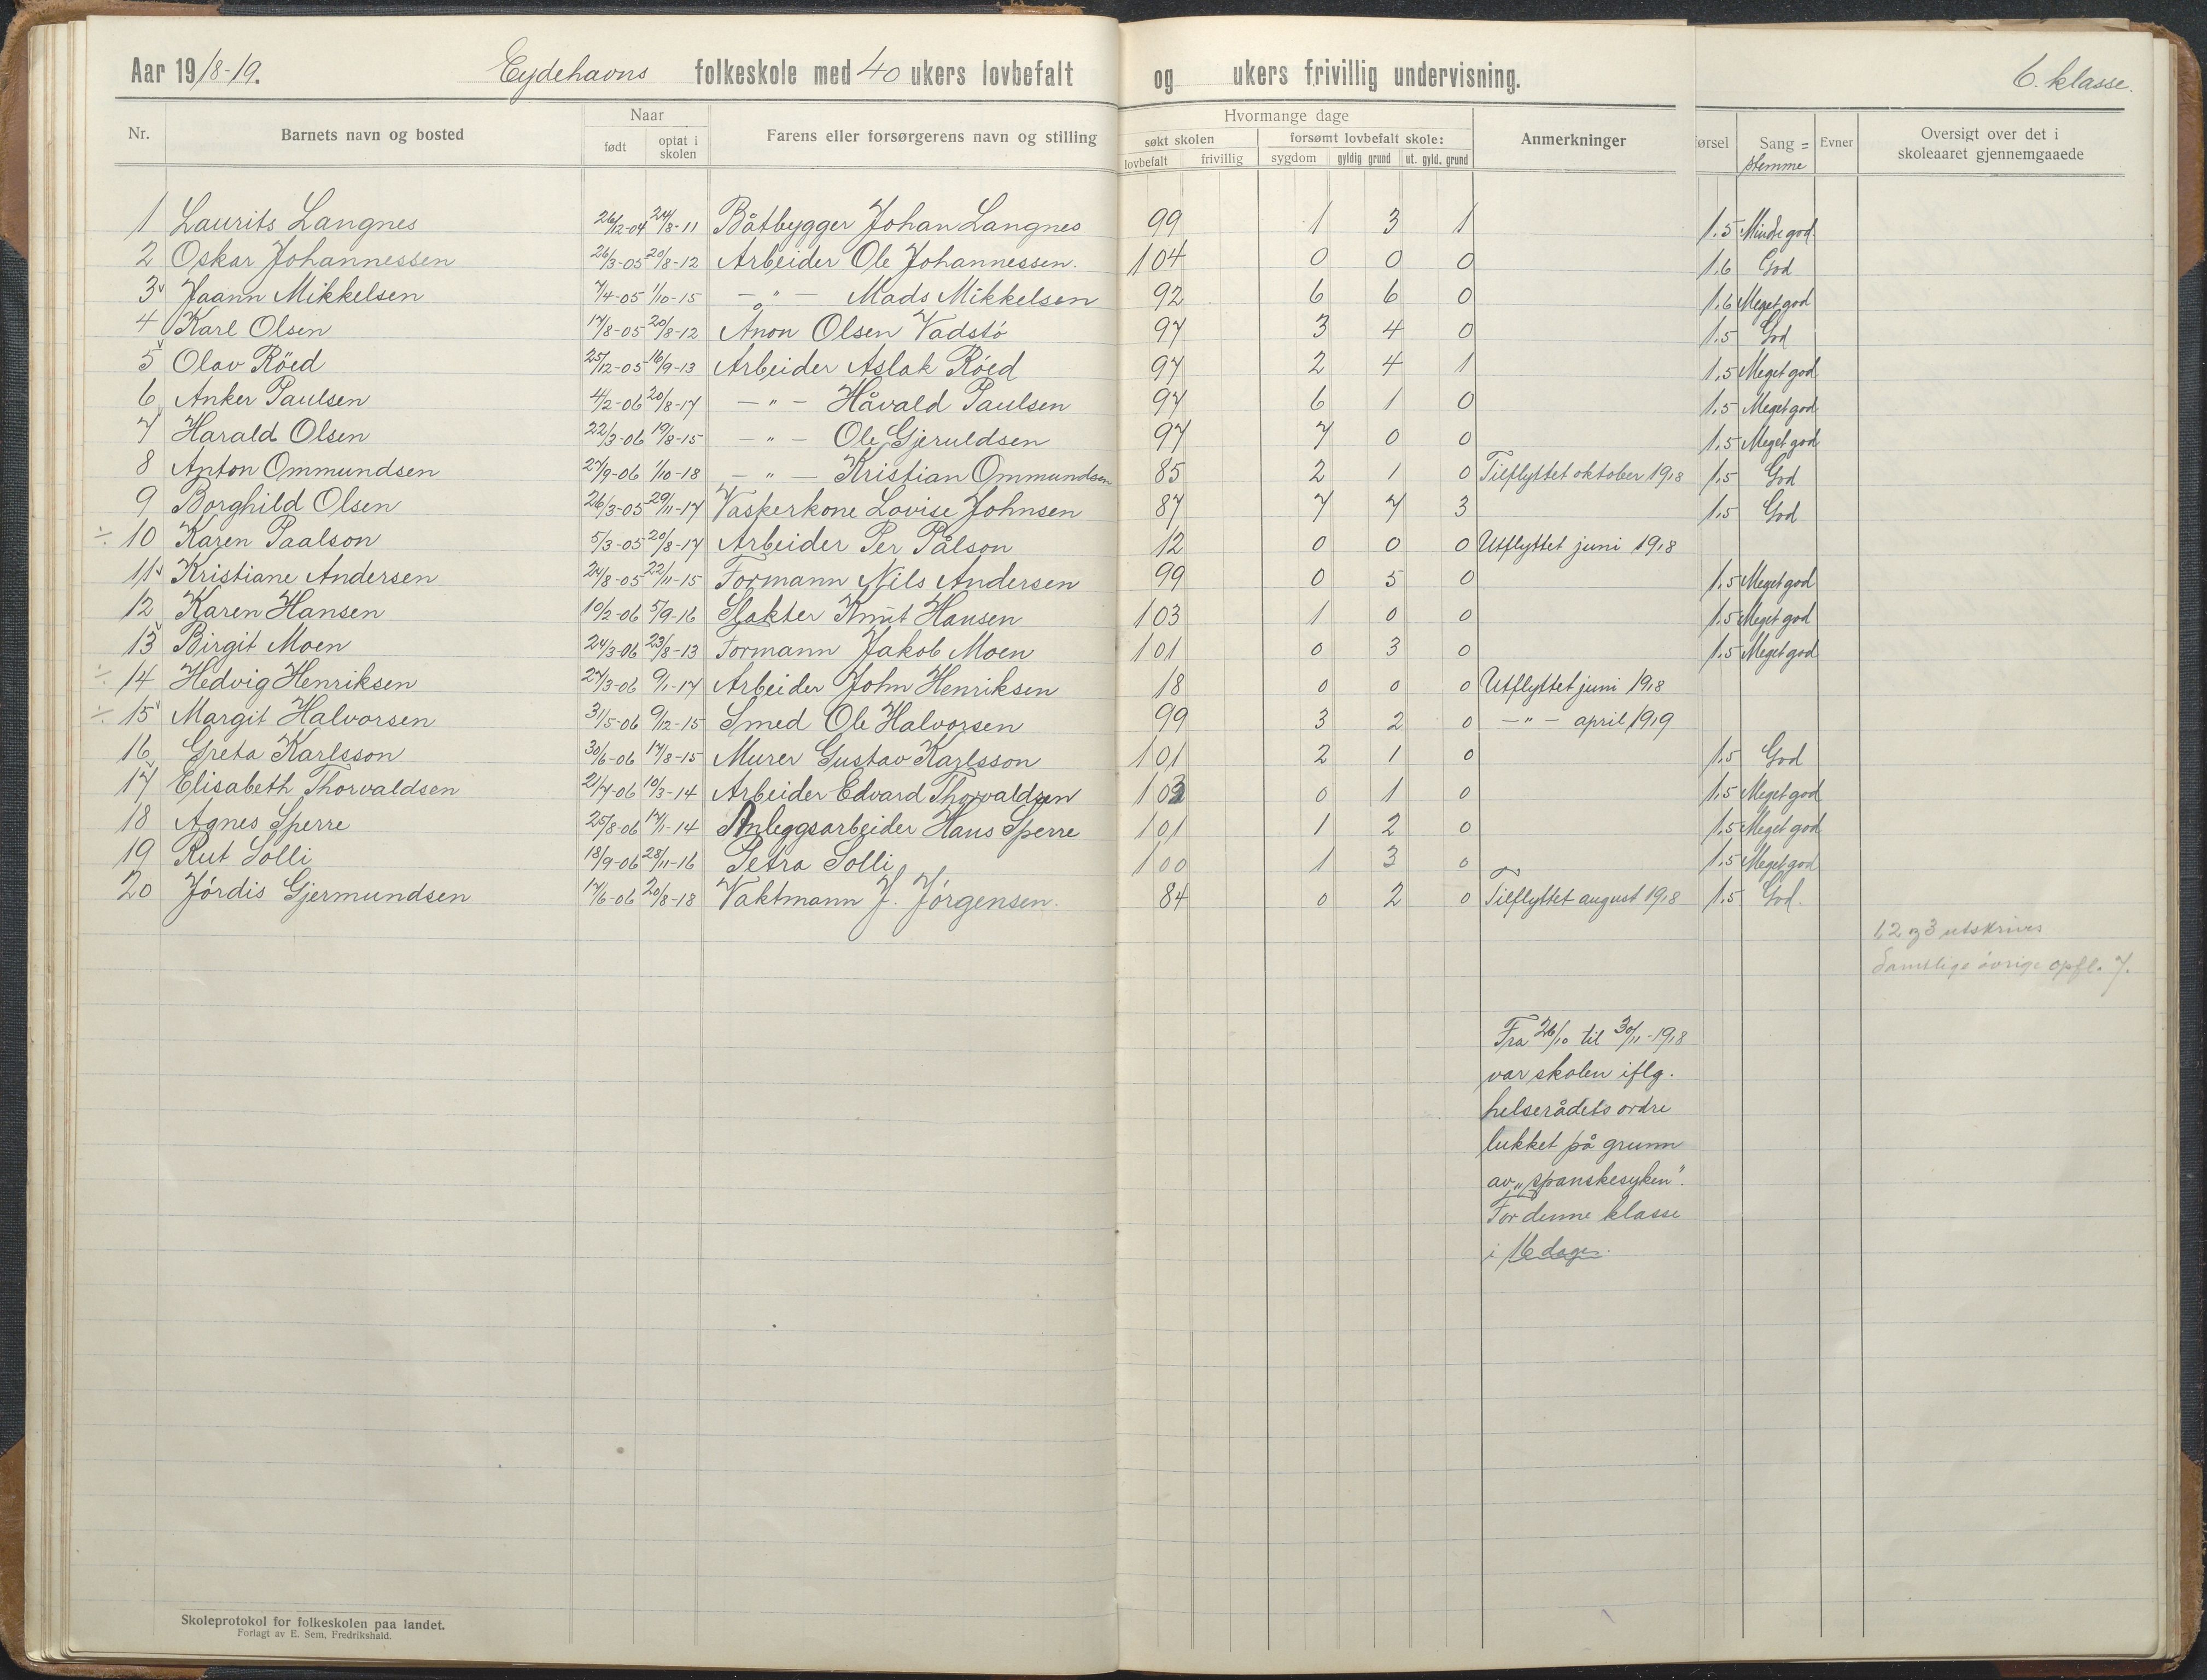 Aar 1918-19. Eydehavns folkeskole med 40 ukers lovbefalt og ukers frivillig undervisning. 6. klasse.
Nr. Barnets navn og bosted Naar født optat i skolen Farens eller forsørgerens navn og stilling Hvormange dage søkt skolen lovbefalt frivillig forsømt lovbefalt skole: sygdom gyldig grund ut. gyld. grund Anmerkninger ørsel Sang = stemme Evner Oversigt over det i skoleaaret gjennemgaaede
1 Laurits Langnes 26/12-04 24/8-11 Båtbygger Johan Langnes 99 1 3 1 1.5 Mindre god
2 Oskar Johannessen 26/3-05 20/8-12 Arbeider Ole Johannessen. 104 0 0 0 1.6 God
3 Jaann Mikkelsen 7/4-05 1/10-15 — " — Mads Mikkelsen 92 6 6 0 1.6 Meget god
4 Karl Olsen 17/8-05 20/8-12 Anon Olsen Vadstö 97 3 4 0 1.5 God
5 Olav Röed 25/12-05 16/9-13 Arbeider Aslak Röed 97 2 4 1 1.5 Meget god
6 Anker Paulsen 4/2-06 20/8-17 — " — Håvald Paulsen 97 6 1 0 1.5 Meget god
7 Harald Olsen 22/3-06 19/8-15 — " — Ole Gjeruldsen 97 7 0 0 1.5 Meget god
8 Anton Ommundsen 27/9-06 1/10-18 — " — Kristian Ommundsen 85 2 1 0 Tilflyttet oktober 1918 1.5 God
9 Borghild Olsen 26/3-05 29/11-17 Vaskerkone Lovise Johnsen 87 7 7 3 1.5 God
÷ 10 Karen Paalson 5/3-05 20/8-17 Arbeider Per Pålson 12 0 0 0 Utflyttet juni 1918
11 Kristiane Andersen 24/8-05 22/11-15 Formann Nils Andersen 99 0 5 0 1.5 Meget god
12 Karen Hansen 10/2-06 5/9-16 Slakter Knut Hansen 103 1 0 0 1.5 Meget god
13 Birgit Moen 24/3-06 23/8-13 Formann Jakob Moen 101 0 3 0 1.5 Meget god
÷ 14 Hedvig Henriksen 27/3-06 9/1-17 Arbeider John Henriksen 18 0 0 0 Utflyttet juni 1918
÷ 15 Margit Halvorsen 31/5-06 9/12-15 Smed Ole Halvorsen 99 3 2 0 — " — april 1919
16 Greta Karlsson 30/6-06 17/8-15 Murer Gustav Karlsson 101 2 1 0 1.5 God
17 Elisabeth Thorvaldsen 21/7-06 10/3-14 Arbeider Edvard Thorvaldsen 103 0 1 0 1.5 Meget god
18 Agnes Sperre 25/8-06 17/1-14 Anleggsarbeider Hans Sperre 101 1 2 0 1.5 Meget god
19 Rut Solli 18/9-06 28/11-16 Petra Solli 100 1 3 0 1.5 Meget god
20 Jördis Gjermundsen 17/6-06 20/8-18 Vaktmann J. Jörgensen. 84 0 2 0 Tilflyttet august 1918 1.5 God.
1, 2 og 3 utskrives
Samtlige övrige opfl. 7.
Fra 26/10 til 30/11-1918
var skolen iflg.
helserådets ordre
lukket på grunn
av „spanskesyken".
For denne klasse
i 16 dager.
Skoleprotokol for folkeskolen paa landet.
Forlagt av E. Sem, Fredrikshald.